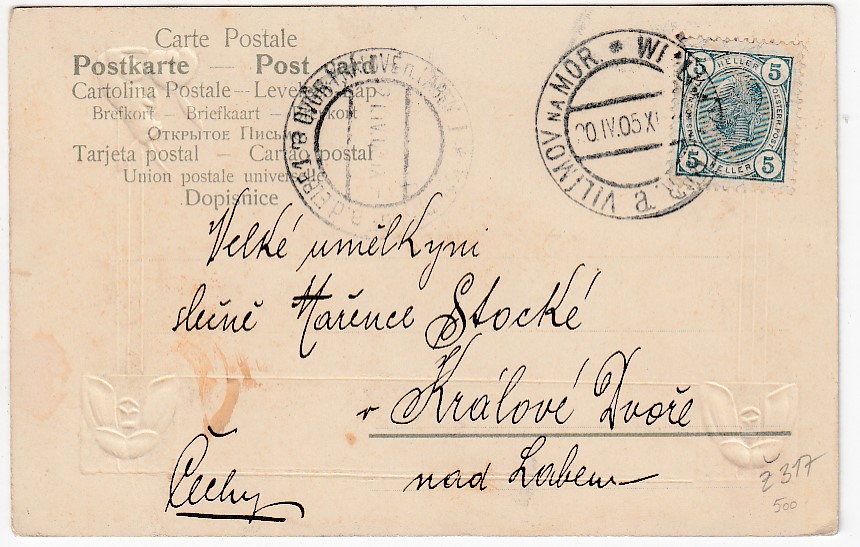 Carte Postale
Postkarte — Post card
Cartolina Postale — Levelezö-Lap
Brefkort — Briefkaart — kort
Открытое Письмо
Tarjeta postal — Cartão postal
Union postale universelle
Dopisnice
VILIMOV NA MOR. * WI
20.IV.05 XI
a.
5 HELLER 5
OESTERR. POST
5 HELLER 5
Velké umělkyni
slečně Mařence Stocké
v Králové Dvoře
nad Labem
Čechy
ž 317
500